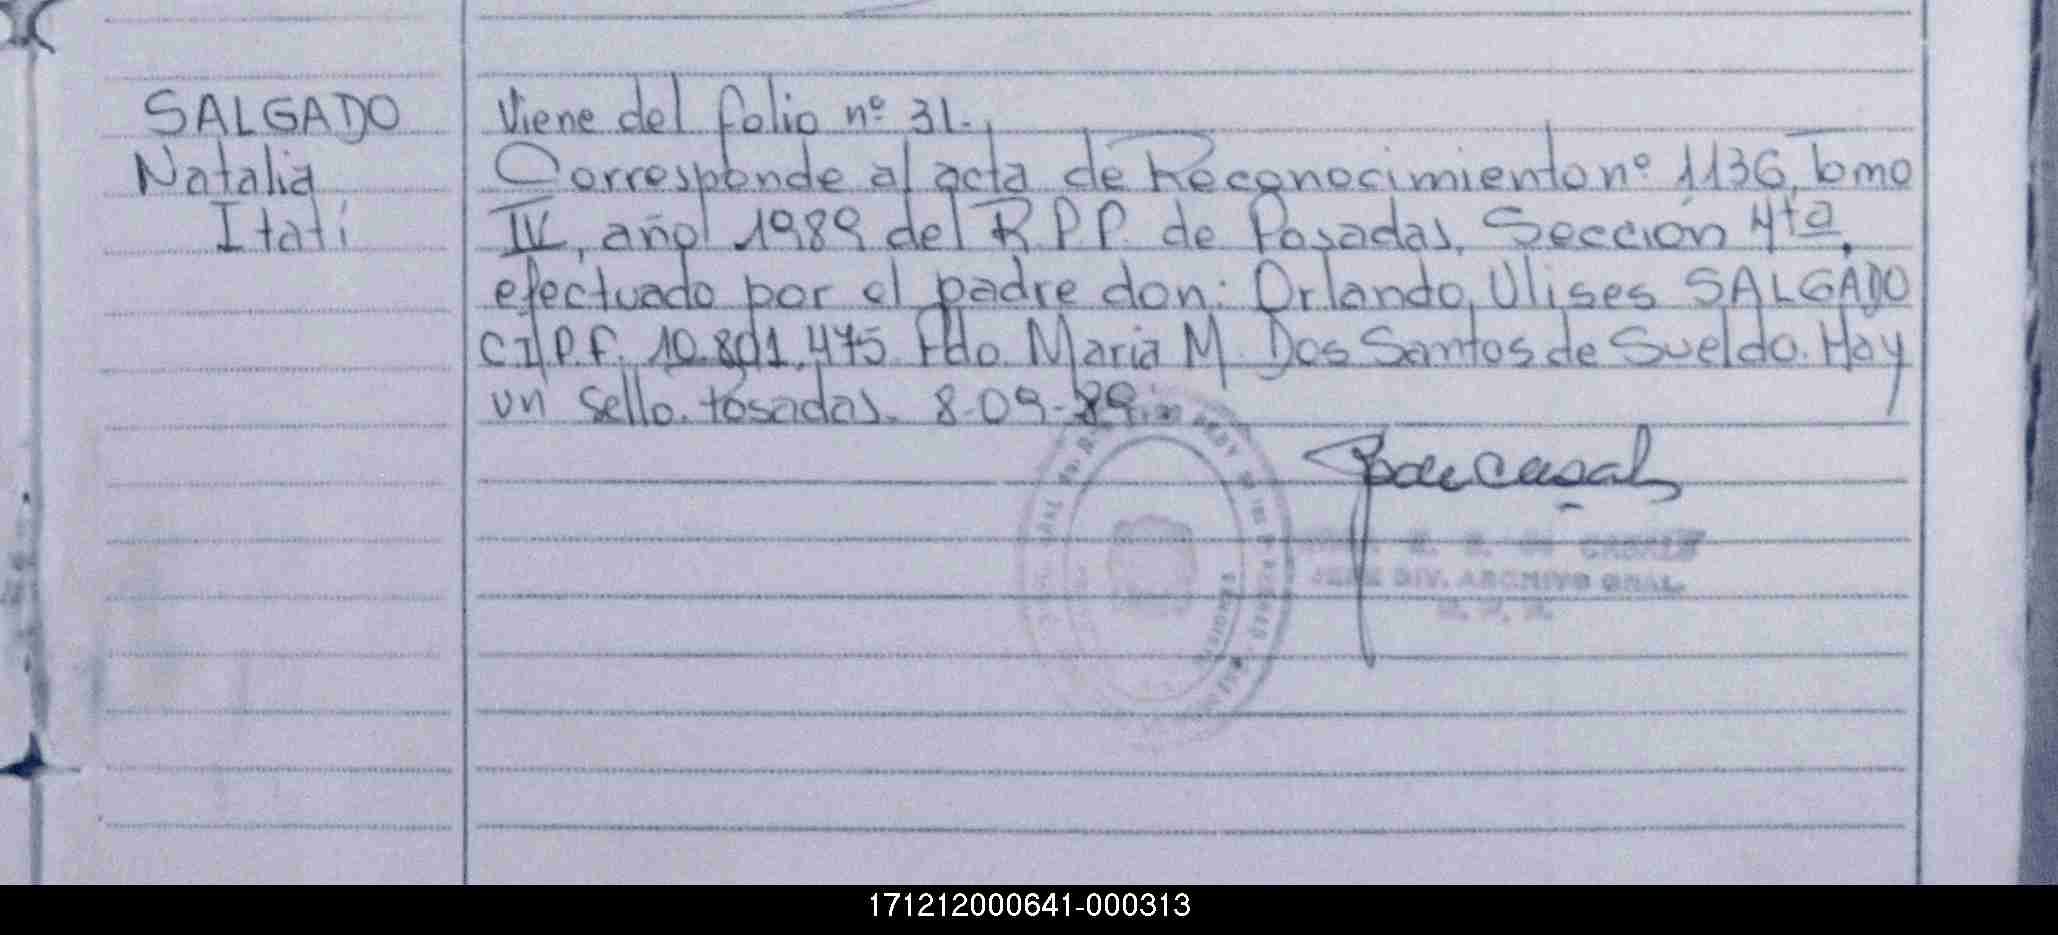 SALGADO
Natalia
Itatí
Viene del folio nº 31.
Corresponde al acta de Reconocimiento nº 1136, Tomo
IV, año 1989 del R.P.P. de Posadas, Sección 4ta,
efectuado por el padre don: Orlando Ulises SALGADO
C.I.P.F. 10.801.475 Fdo. Maria M. Dos Santos de Sueldo. Hay
un sello. Posadas. 8-09-89.
DE CASALS
JEFE DIV. ARCHIVO GRAL.
171212000641-000313